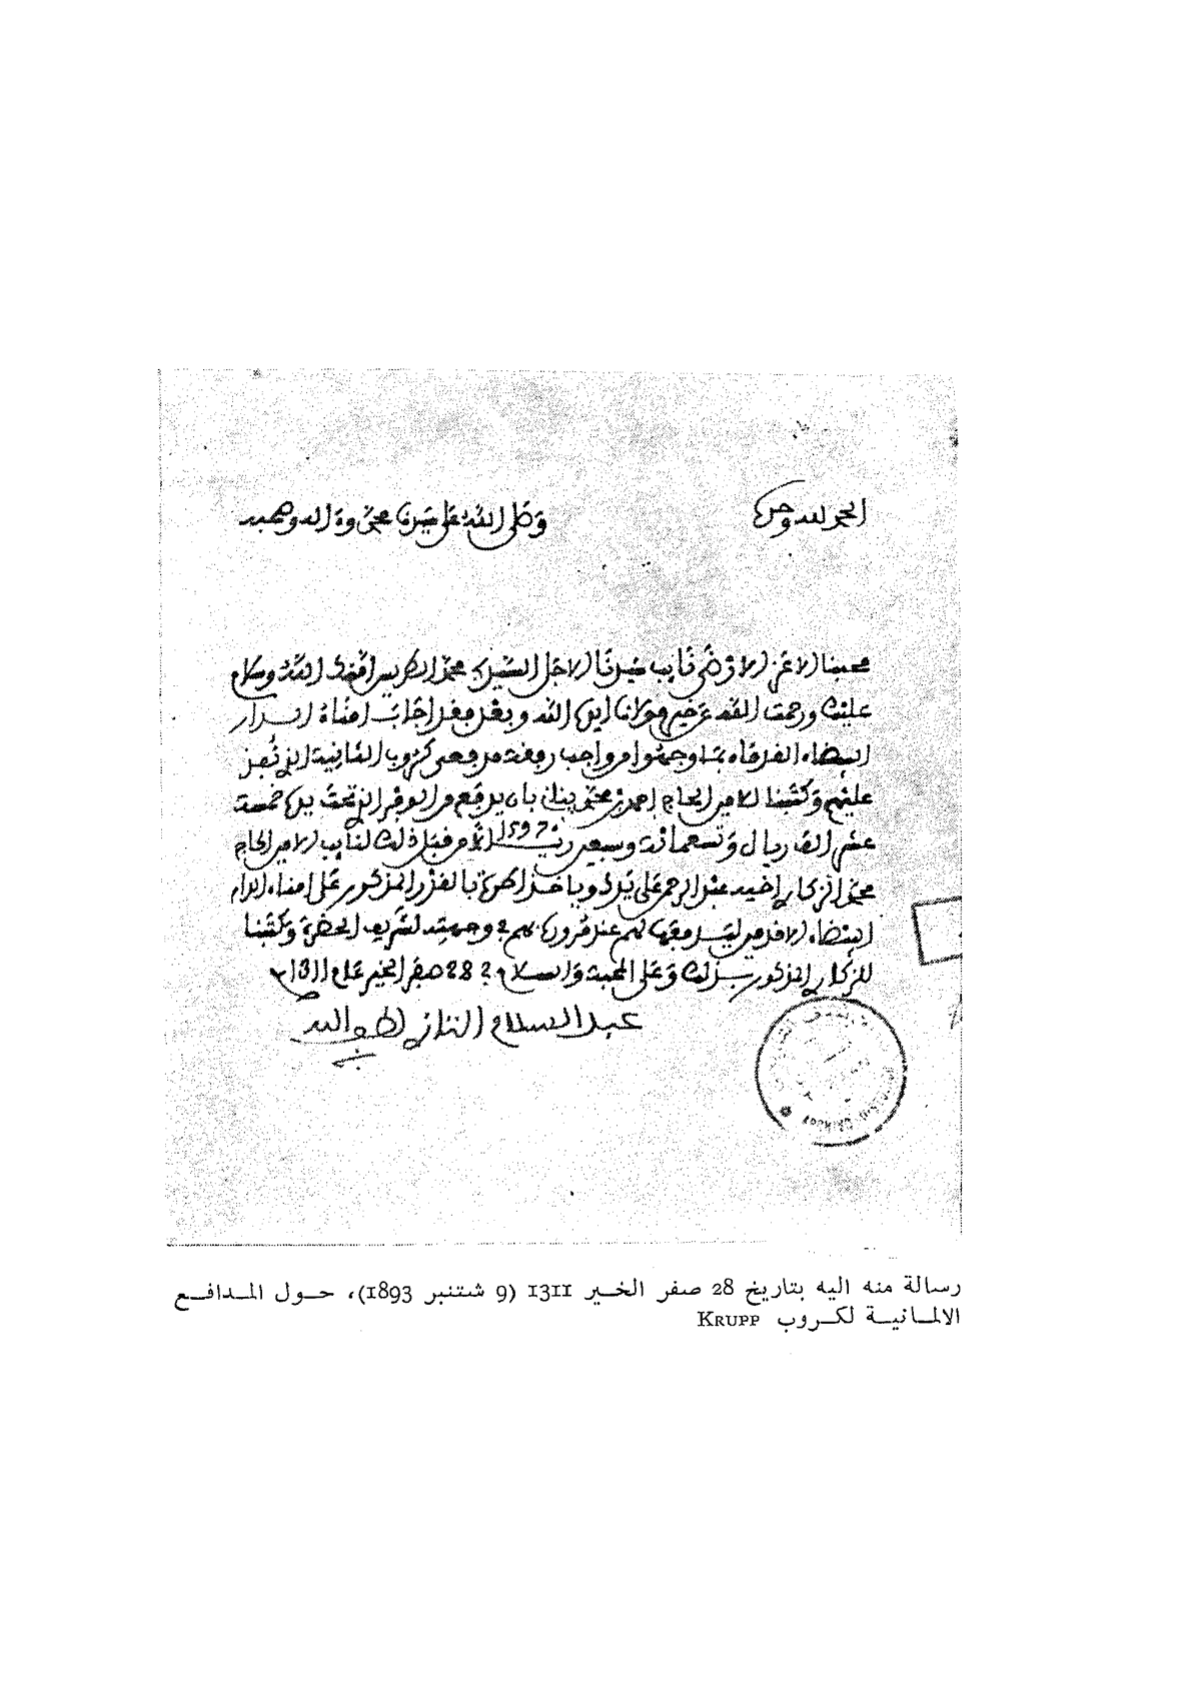 الحمد لله وحده
وصلى الله على سيدنا محمد وءاله وصحبه
محبنا الاعز الارضى نايب سيدنا الاجل السيد محمد الطريس امنك الله وسلام
عليك ورحمت الله عن خير مولانا ايده الله وبعد فقد اجاب امناء الدار
البيضاء القدماء بما وجهوا من واجب دفعة مدفعى كروب الثانية الذ
عليهم وكتبنا للامين الحاج احمد بن محمد بنان بان يدفع من الوفر الذ تحت يده خمسة
عشر الف ريال وتسعمائة وسبعين ريـ 15970 من قبل ذلك لنايب الامين الحاج
محمد الزكاري اخيه عبد الرحمن على يدك وياخذ الحوالة بالقدر المذكور على امناء الدار
البيضاء الاقدمين ليدفعها لهم عند مرورك بهم في وجهته لشريف الحضرة وكتبنا
للزكاري المذكور بذلك وعلى المحبة والسلام في 28 صفر الخير عام 1311
عبد السلام التازي الله
رسالة منه اليه بتاريخ 28 صفر الخير 1311 (9 شتنبر 1893)، حول المدافع
الالمانية لكروب KRUPP